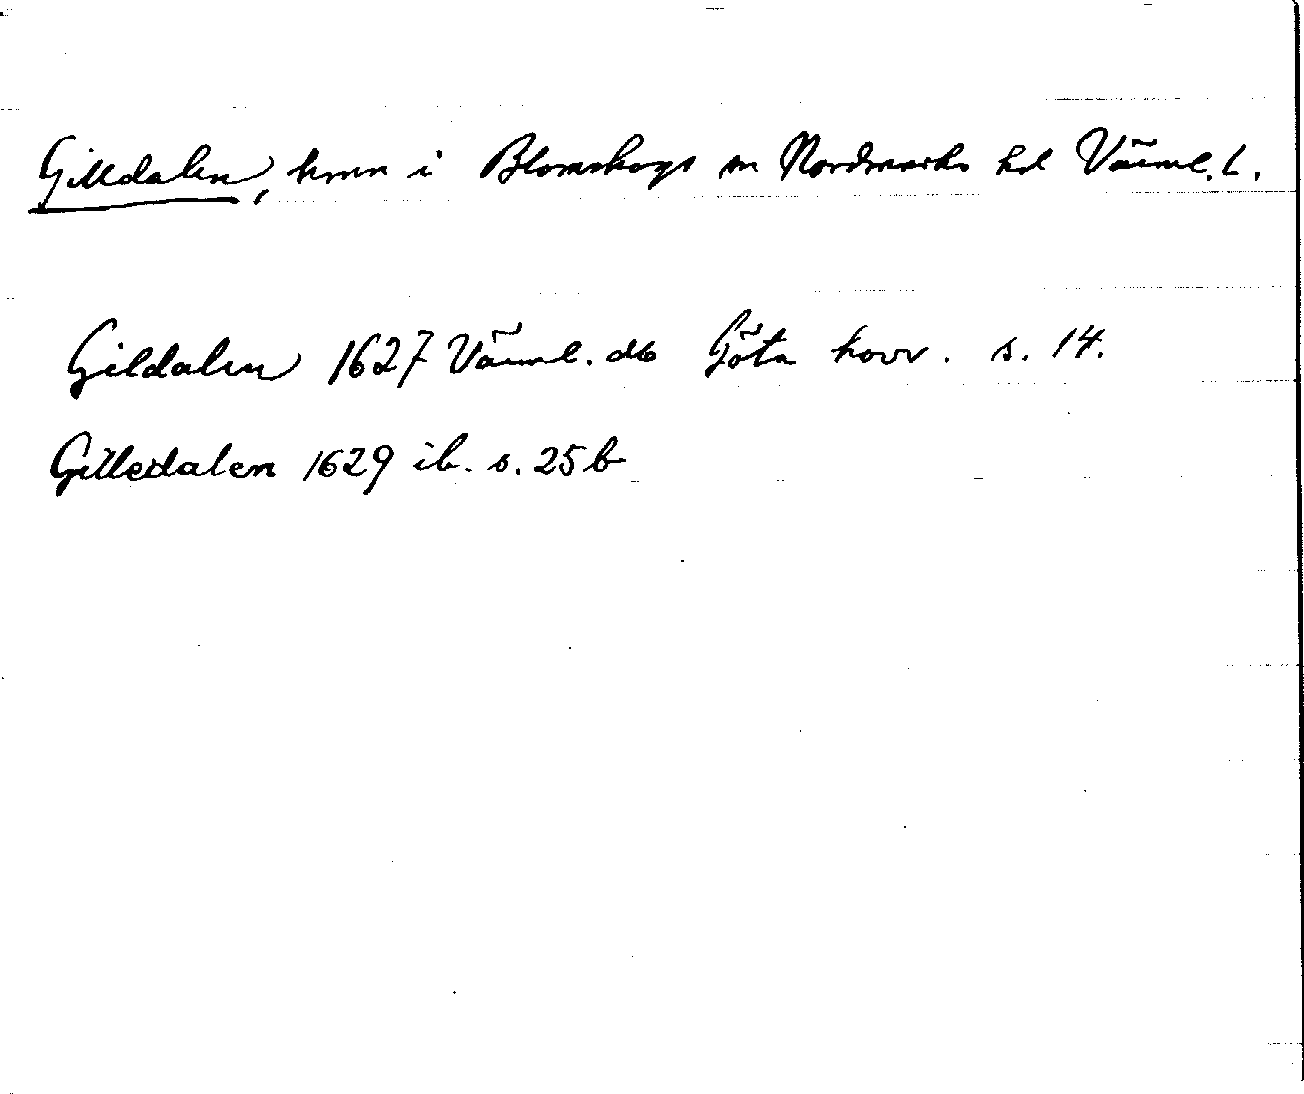 Gilldalen, hmn i Blomskogs sn Nordmarks hd Värml. L.
Gildalen 1627 Värml. db Göta hovr. s. 14.
Gilledalen 1629 ib. s. 25 b